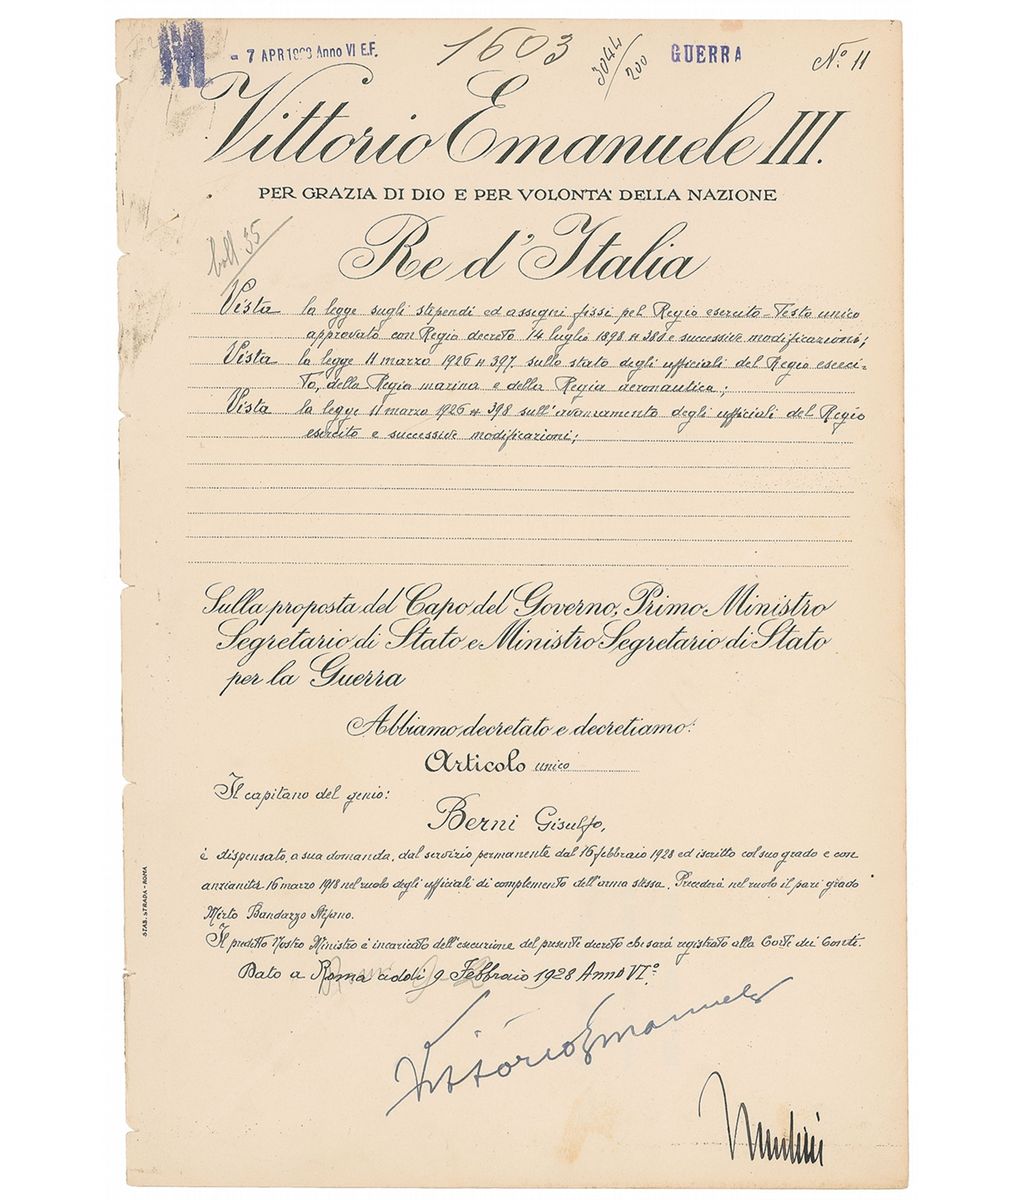 - 7 APR 1928 Anno VI E.F.
1603
3044/200
GUERRA
N.° 11
Vittorio Emanuele III.
PER GRAZIA DI DIO E PER VOLONTA' DELLA NAZIONE
Re d'Italia
boll. 35
Vista la legge sugli stipendi ed assegni fissi pel Regio esercito - Testo unico
approvato con Regio decreto 14 luglio 1898 n 380 e successive modificazioni;
Vista la legge 11 marzo 1926 n 397 sullo stato degli ufficiali del Regio eserci-
to, della Regia marina e della Regia aeronautica;
Vista la legge 11 marzo 1926 n 398 sull'avanzamento degli ufficiali del Regio
esercito e successive modificazioni;
Sulla proposta del Capo del Governo, Primo Ministro
Segretario di Stato e Ministro Segretario di Stato
per la Guerra
Abbiamo decretato e decretiamo:
Articolo unico
Il capitano del genio:
Berni Gisulfo,
è dispensato, a sua domanda, dal servizio permanente dal 16 febbraio 1928 ed iscritto col suo grado e con
anzianità 16 marzo 1918 nel ruolo degli ufficiali di complemento dell'arma stessa. Precederà nel ruolo il pari grado
Mirto Bandazzo Stefano.
Il predetto Nostro Ministro è incaricato dell'esecuzione del presente decreto che sarà registrato alla Corte dei Conti.
Dato a Roma addì 9 Febbraio 1928 Anno VI°.
Vittorio Emanuele
Mussolini
STAB. STRADA - ROMA